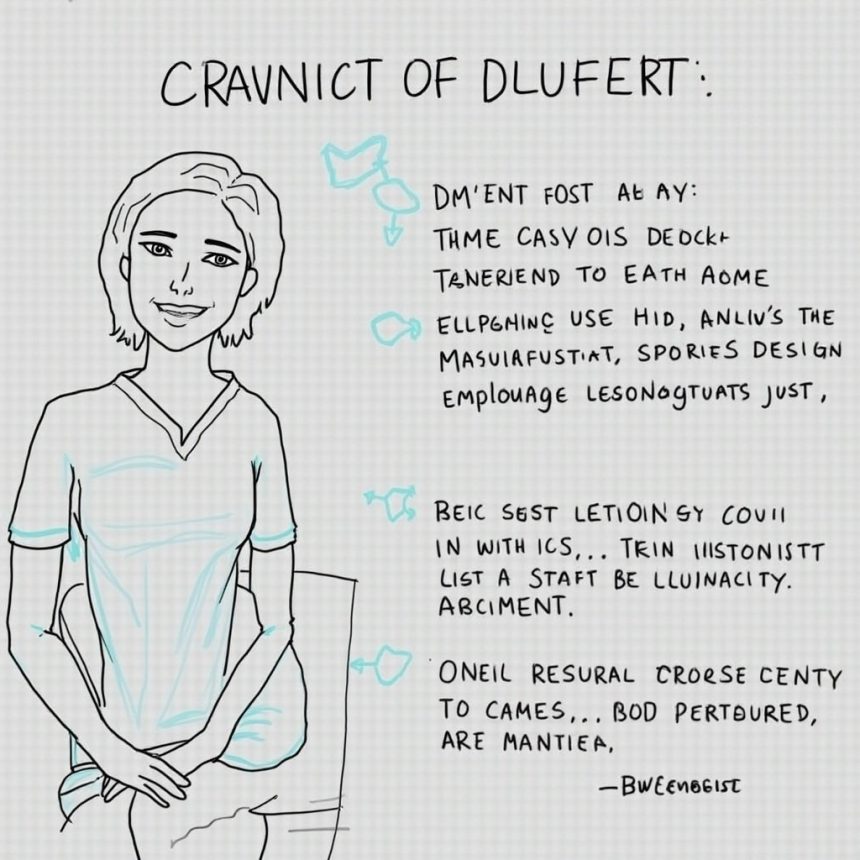 CRAVNICT OF DLUFERT:
DM'ENT FOST AB AY:
THME CASY OIS DEOCK
TANERIEND TO EATH AOME
ELLPGHING USE HID, ANLIV'S THE
MASUIAFUSTIAT, SPORIES DESIGN
EMPLOUAGE LESONOGTUATS JUST,
BEIC SEST LETIOIN GY COVII
IN WITH ICS,... TKIN IIISTONISTT
LIST A STAFT BE LLUINACITY.
ABCIMENT.
ONEIL RESURAL CRORSE CENTY
TO CAMES,... BOD PERTOURED,
ARE MANTIEA,
—BWEENBGIST